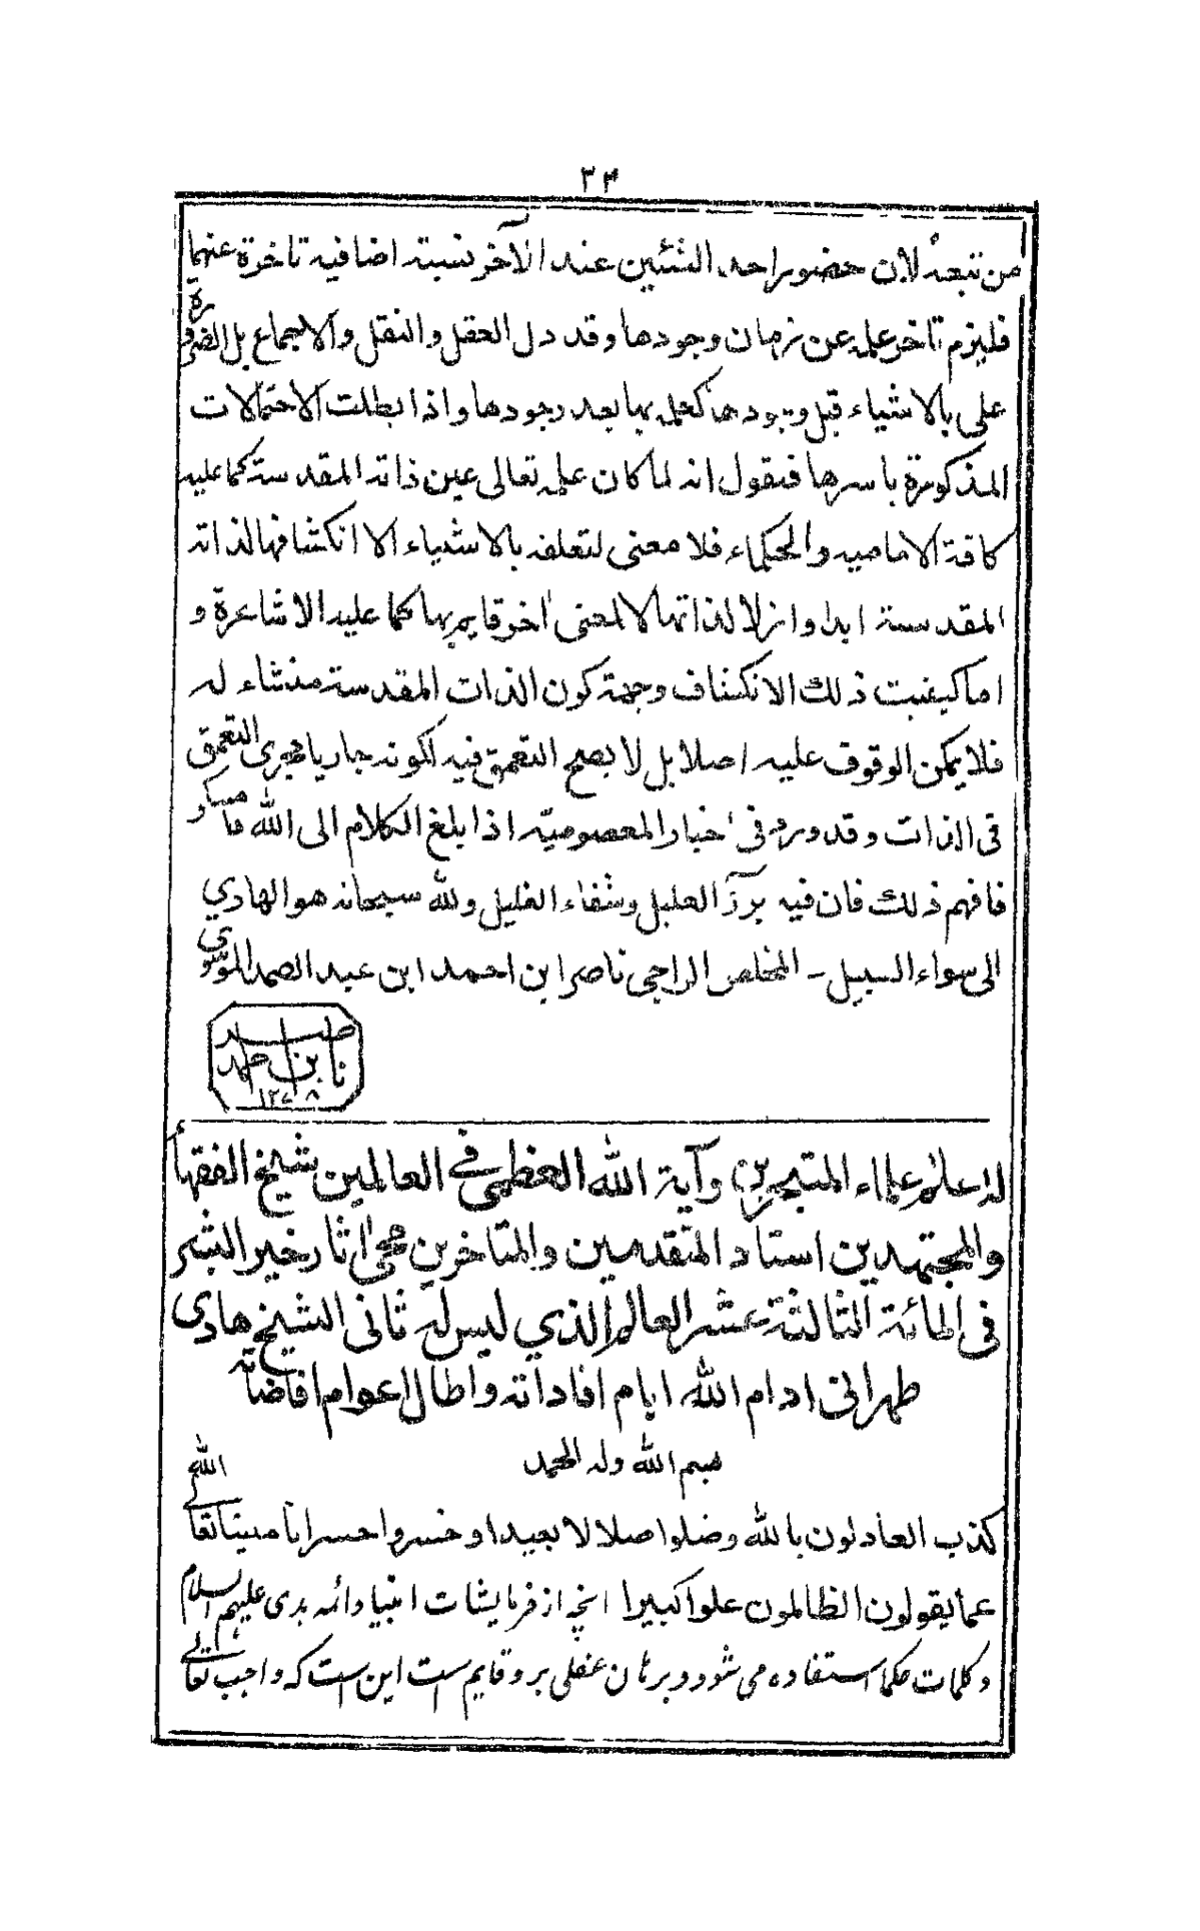 ٣٣
من تتبعه لان حضور احد الشئين عند الآخر نسبة اضافيه تاخرة عنهما
فليزم تاخر علمه عن زمان وجودها وقد دل العقل والنقل والاجماع بل الضرورة
على بالاشياء قبل وجودها كعلمه بها بعد وجودها واذا بطلت الاحتمالات
المذكورة باسرها فنقول انه لما كان علمه تعالى عين ذاته المقدسة كما عليه
كافة الاماميه والحكماء فلا معنى لتعلقه بالاشياء الا انكشافها لذاته
المقدسة ابدا وازلا لذاتها لا لمعنى اخر قايم بها كما عليه الاشاعرة و
اما كيفيت ذلك الانكشاف وجهة كون الذات المقدسة منشاء له
فلا يمكن الوقوف عليه اصلا بل لا يصح التعمق فيه لكونه جاريا مجرى التعمق
فى الذات وقد ورد فى اخبار المعصوميه اذا بلغ الكلام الى الله فامسكو
فافهم ذلك فان فيه برز العليل وشفاء الغليل ولله سبحانه هو الهادي
الى سواء السبيل - المخلص الراجى ناصر ابن احمد ابن عبد الصمد الموسوي
ناصر بن احمد
لا علم علماء المتبحرين وآية الله العظمى فى العالمين شيخ الفقهأ
والمجتهدين استاد المتقدمين والمتاخرين محى اثار خير البشر
فى المائة الثالثة عشر العالم الذي ليس له ثانى الشيخ هادى
طهرانى ادام الله ايام افاداته واطال اعوام افاضاته
بسم الله وله الحمد
كذب العادلون بالله وضلوا ضلالا بعيدا وخسروا خسرانا مبينا تعالى الله
عما يقولون الظالمون علوا كبيرا انچه از فرمايشات انبيا وائمه هدى عليهم السلام
وكلمات حكما استفاده مى شود وبرهان عقلى بر وقايم است اين است كه واجب تعالى